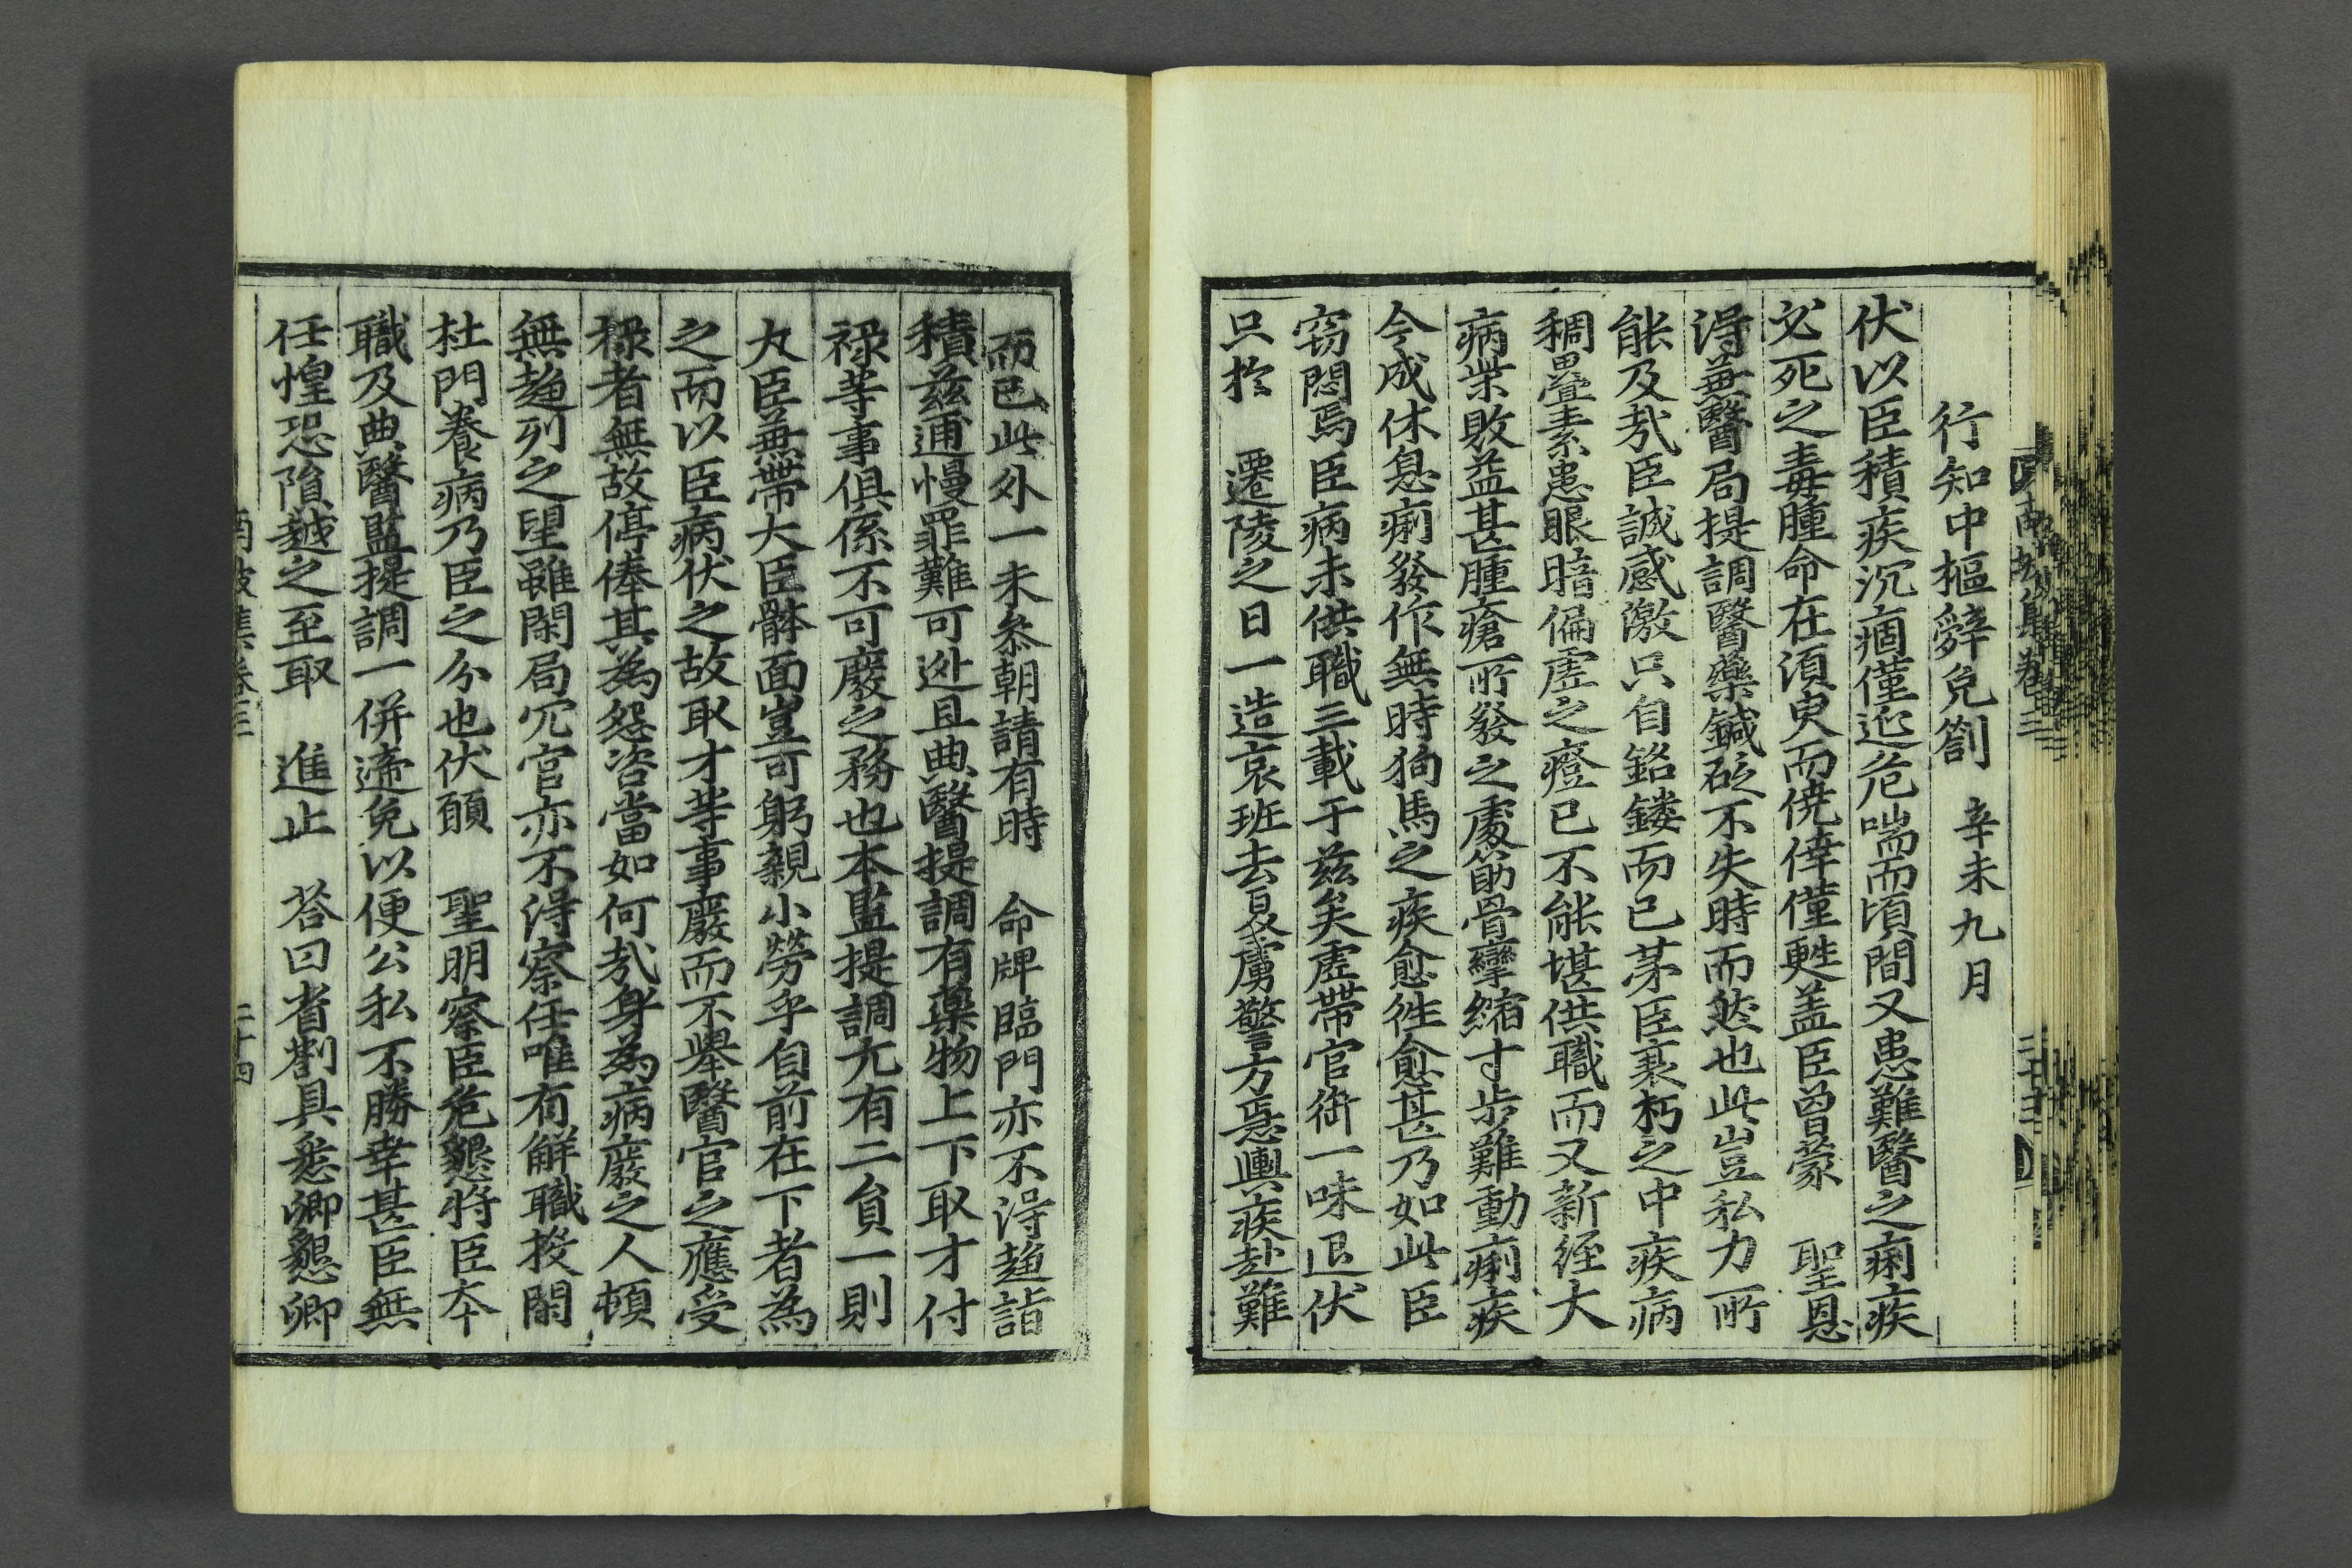 行知中樞辭免箚 辛未九月
伏以臣積疾沉痼僅延危喘而頃間又患難醫之痢疾
必死之毒腫命在須臾而僥倖僅甦盖臣曾蒙 聖恩
得兼醫局提調醫藥鍼砭不失時而然也此豈私力所
能及㢤臣誠感激只自銘鏤而已苐臣衰朽之中疾病
稠疊素患眼暗偏虛之症已不能堪供職而又新經大
病柴敗益甚腫瘡所發之處筋骨攣縮寸步難動痢疾
今成休息痢發作無時狗馬之疾愈徃愈甚乃如此臣
窃悶焉臣病未供職三載于茲矣虛帶官銜一味退伏
只於 遷陵之日一造哀班去夏虜警方急輿疾赴難
而已此外一未叅朝請有時 命牌臨門亦不得趍詣
積茲逋慢罪難可逃且典醫提調有藥物上下取才付
祿等事俱係不可廢之務也本監提調尤有二員一則
大臣兼帶大臣軆面豈可躬親小勞乎自前在下者為
之而以臣病伏之故取才等事廢而不舉醫官之應受
祿者無故停俸其為怨咨當如何㢤身為病廢之人頓
無趍列之望雖閑局冗官亦不得察任唯有解職投閑
杜門養病乃臣之分也伏願 聖明察臣危懇將臣本
職及典醫監提調一併遞免以便公私不勝幸甚臣無
任惶恐隕越之至取 進止 荅曰省劄具悉卿懇卿
南坡集卷三 二十四